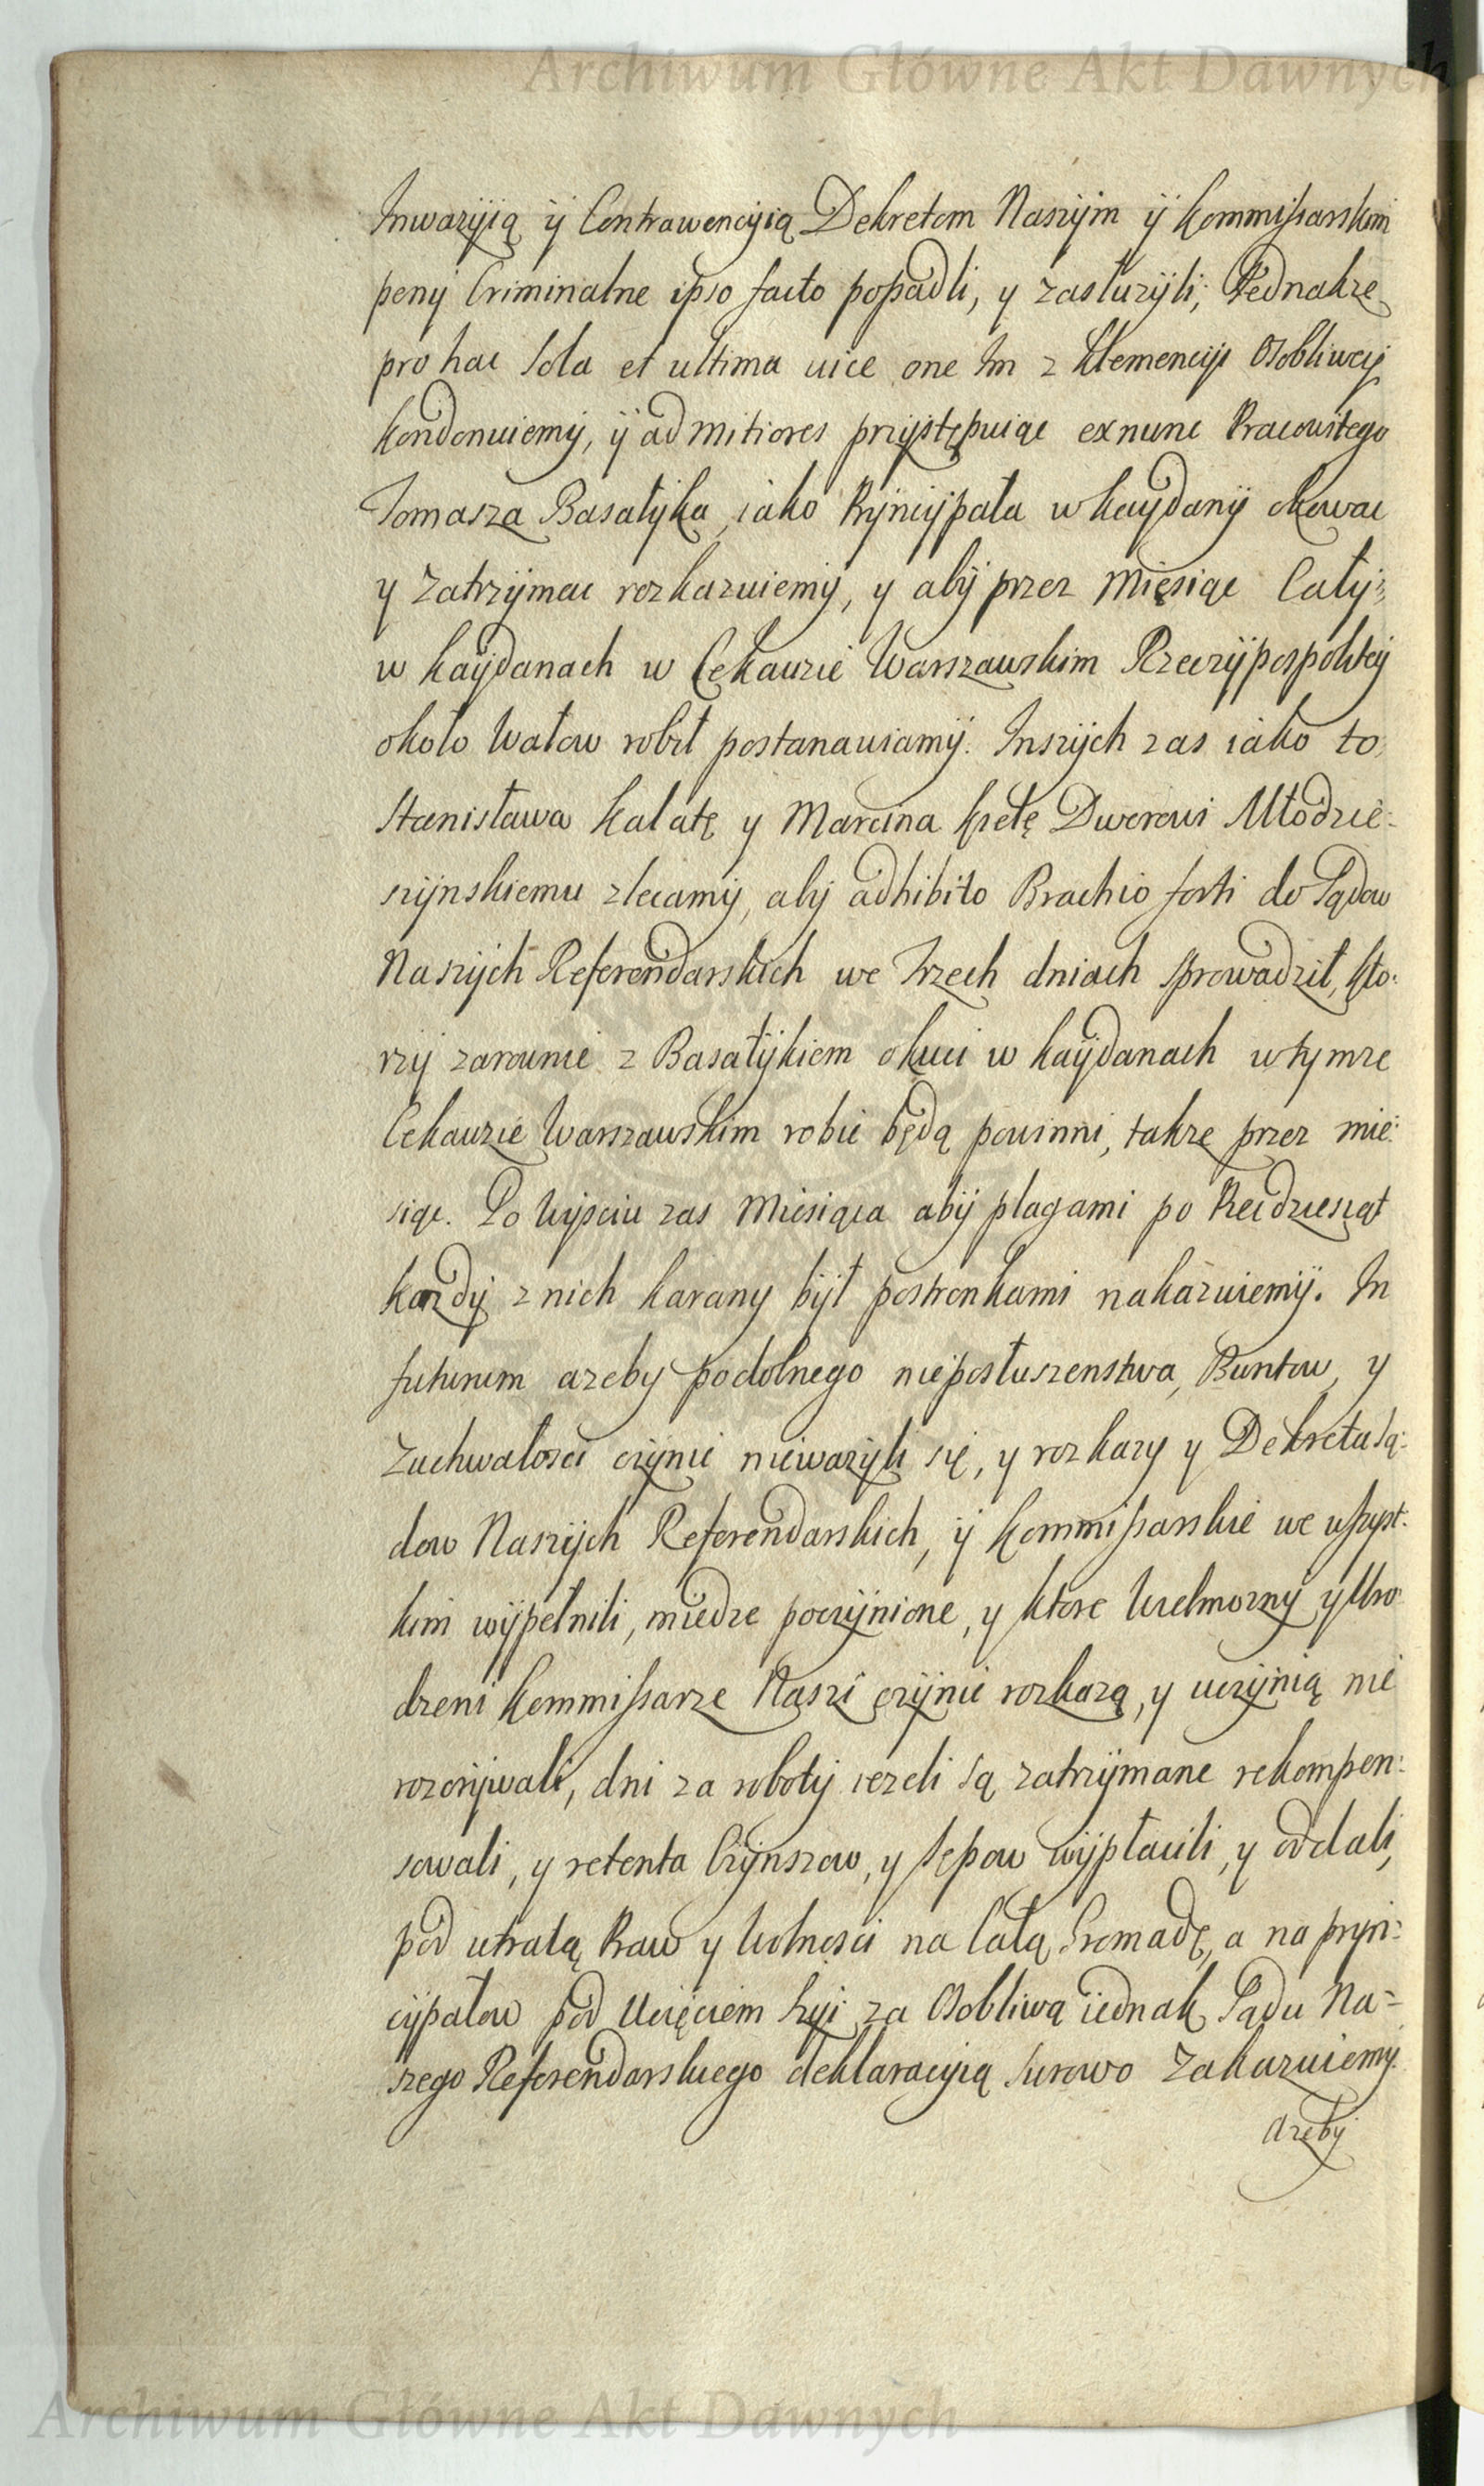 Archiwum Główne Akt Dawnych
Inwazyią ÿ Contrawencyią Dekretom Naszym ÿ Kommissarskim
peny Criminalne ipso facto popadli, y zasłuzyli; Jednakze
pro hac sola et ultima vice one Im z Klemencyi Osobliwey
kondonuiemy, ÿ ad mitiores przystępuiąc ex nunc Pracowitego
Tomasza Basałyka, iako Pryncypała w kaydany okowac
y zatrzymac rozkazuiemy, y aby przez Miesiąc Cały
w kaydanach w Cekauzie Warszawskim Rzeczypospolitey
około Wałow robił postanawiamy. Inszych zas iako to
Stanisława Kalatę y Marcina Kretę Dworowi Młodzie-
szynskiemu zlecamy, aby adhibito Brachio forti do Sądow
Naszych Referendarskich we trzech dniach sprowadził, kto-
rzy zarownie z Basałykiem okuci w kaydanach w tymze
Cekauzie Warszawskim robic będą powinni, takze przez mie-
siąc. Po Wysciu zas Miesiąca aby plagami po Piecdziesiąt
kazdy z nich karany był postronkami nakazuiemy. In
futurum azeby podobnego nieposłuszenstwa, Buntow, y
zuchwałosci czynic niewazyli się, y rozkazy y Dekreta Są-
dow Naszych Referendarskich, ÿ Kommissarskie we wszyst-
kim wypełnili, miedze poczynione, y ktore Wielmozny y Uro-
dzeni Kommissarze Naszi czynic rozkazą, y uczynią nie
rozorywali, dni za roboty iezeli są zatrzymane rekompen-
sowali, y retenta Czynszow, y Sepow wypłacili, y oddali,
pod utratą Praw y Wolnosci na Całą Gromadę, a na pryn-
cypałow pod Ucięciem Szyi za Osobliwą iednak Sądu Na-
szego Referendarskiego deklaracyią surowo zakazuiemy.
Azeby
Archiwum Główne Akt Dawnych